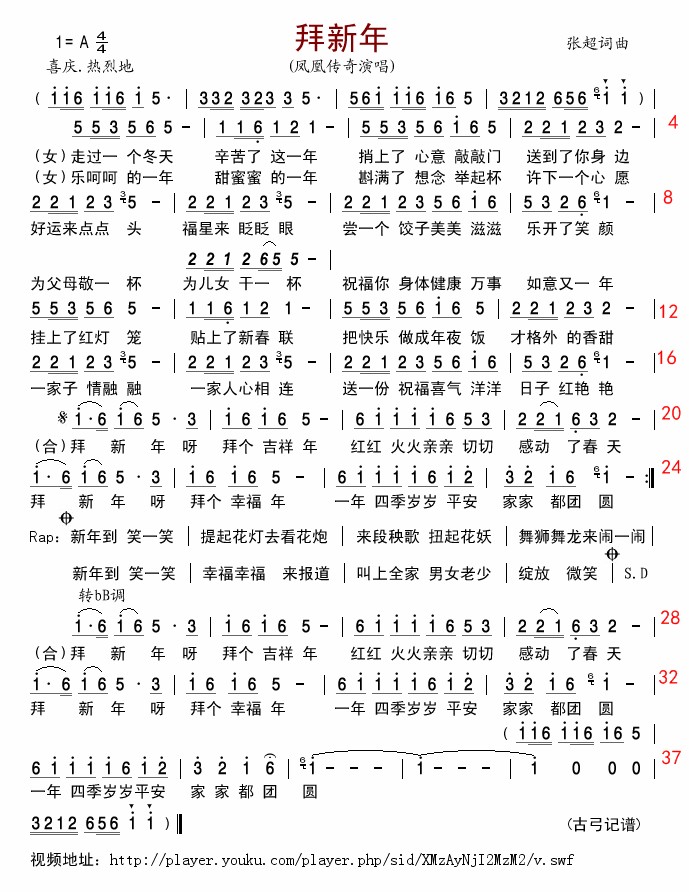 拜新年
1= A 4/4
张超词曲
喜庆.热烈地
(凤凰传奇演唱)
( i i 6 i i 6 i 5 · | 3 3 2 3 2 3 3 5 · | 5 6 i i i 6 i 6 5 | 3 2 1 2 6 5 6 i i ) |
5 5 3 5 6 5 - | 1 1 6 1 2 1 - | 5 5 3 5 6 5 6 i 6 5 | 2 2 1 2 3 2 - | 4
(女)走过一 个冬天 辛苦了 这一年 捎上了 心意 敲敲门 送到了你身 边
(女)乐呵呵 的一年 甜蜜蜜 的一年 斟满了 想念 举起杯 许下一个心 愿
2 2 1 2 3 5 - | 2 2 1 2 3 5 - | 2 2 1 2 3 5 6 5 i 6 | 5 3 2 6 i - | 8
好运来点点 头 福星来 眨眨 眼 尝一个 饺子美美 滋滋 乐开了笑 颜
2 2 1 2 6 5 5 - |
为父母敬一 杯 为儿女 干一 杯 祝福你 身体健康 万事 如意又一 年
5 5 3 5 6 5 - | 1 1 6 1 2 1 - | 5 5 3 5 6 5 6 i 6 5 | 2 2 1 2 3 2 - | 12
挂上了红灯 笼 贴上了新春 联 把快乐 做成年夜 饭 才格外 的香甜
2 2 1 2 3 5 - | 2 2 1 2 3 5 - | 2 2 1 2 3 5 6 5 i 6 | 5 3 2 6 i - | 16
一家子 情融 融 一家人心相 连 送一份 祝福喜气 洋洋 日子 红艳 艳
i · 6 i 6 5 · 3 | i 6 i 6 5 - | 6 i i i i 6 5 3 | 2 2 1 6 3 2 - | 20
(合)拜 新 年 呀 拜个 吉祥 年 红红 火火亲亲 切切 感动 了春 天
i · 6 i 6 5 · 3 | i 6 i 6 5 - | 6 i i i i 6 i 2 | 3 2 i 6 i - :‖ 24
拜 新 年 呀 拜个 幸福 年 一年 四季岁岁 平安 家家 都团 圆
Rap: 新年到 笑一笑 | 提起花灯去看花炮 | 来段秧歌 扭起花妖 | 舞狮舞龙来闹一闹 |
新年到 笑一笑 | 幸福幸福 来报道 | 叫上全家 男女老少 | 绽放 微笑 | S.D
转bB调
i · 6 i 6 5 · 3 | i 6 i 6 5 - | 6 i i i i 6 5 3 | 2 2 1 6 3 2 - | 28
(合)拜 新 年 呀 拜个 吉祥 年 红红 火火亲亲 切切 感动 了春 天
i · 6 i 6 5 · 3 | i 6 i 6 5 - | 6 i i i i 6 i 2 | 3 2 i 6 i - | 32
拜 新 年 呀 拜个 幸福 年 一年 四季岁岁 平安 家家 都团 圆
( i i 6 i i 6 i 6 5 |
6 i i i i 6 i 2 | 3 2 i 6 | i - - - | i - - - | i 0 0 0 | 37
一年 四季岁岁平安 家 家 都 团 圆
3 2 1 2 6 5 6 i i ) ‖
(古弓记谱)
视频地址: http://player.youku.com/player.php/sid/XMzAyNjI2MzM2/v.swf